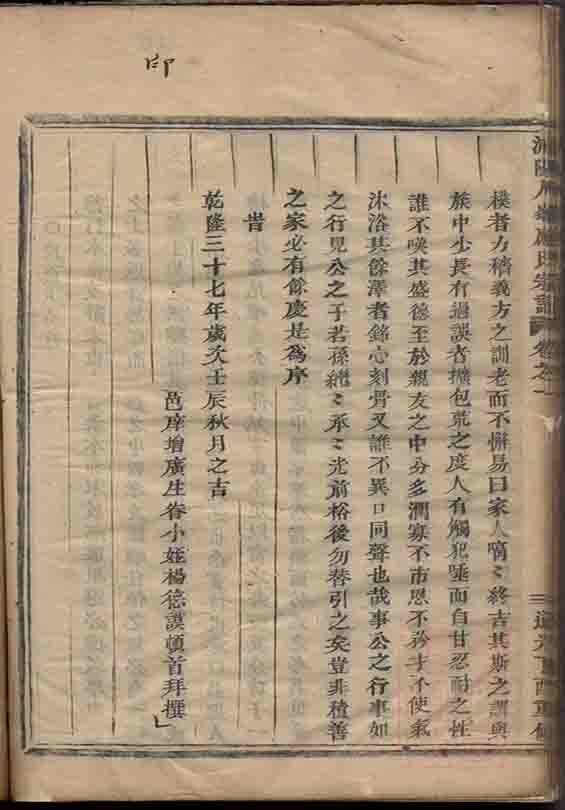 印
樸者力穡義方之訓老而不懈易曰家人嗃〻終吉其斯之謂與
族中少長有過誤者擴包荒之度人有觸犯唾面自甘忍耐之性
誰不嘆其盛德至於親友之中分多潤寡不市恩不矜才不使氣
沐浴其餘澤者銘心刻骨又誰不異口同聲也哉事公之行事如
之行見公之子若孫繩〻承〻光前裕後勿替引之矣豈非積善
之家必有餘慶是為序
旹
乾隆三十七年歲次壬辰秋月之吉
邑庠增廣生眷小姪楊德謨頓首拜撰